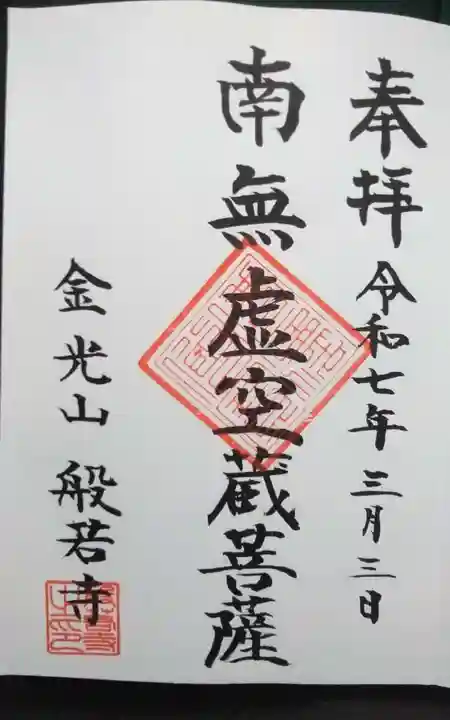 奉拝 令和七年三月三日
南無虚空蔵菩薩
金光山 般若寺